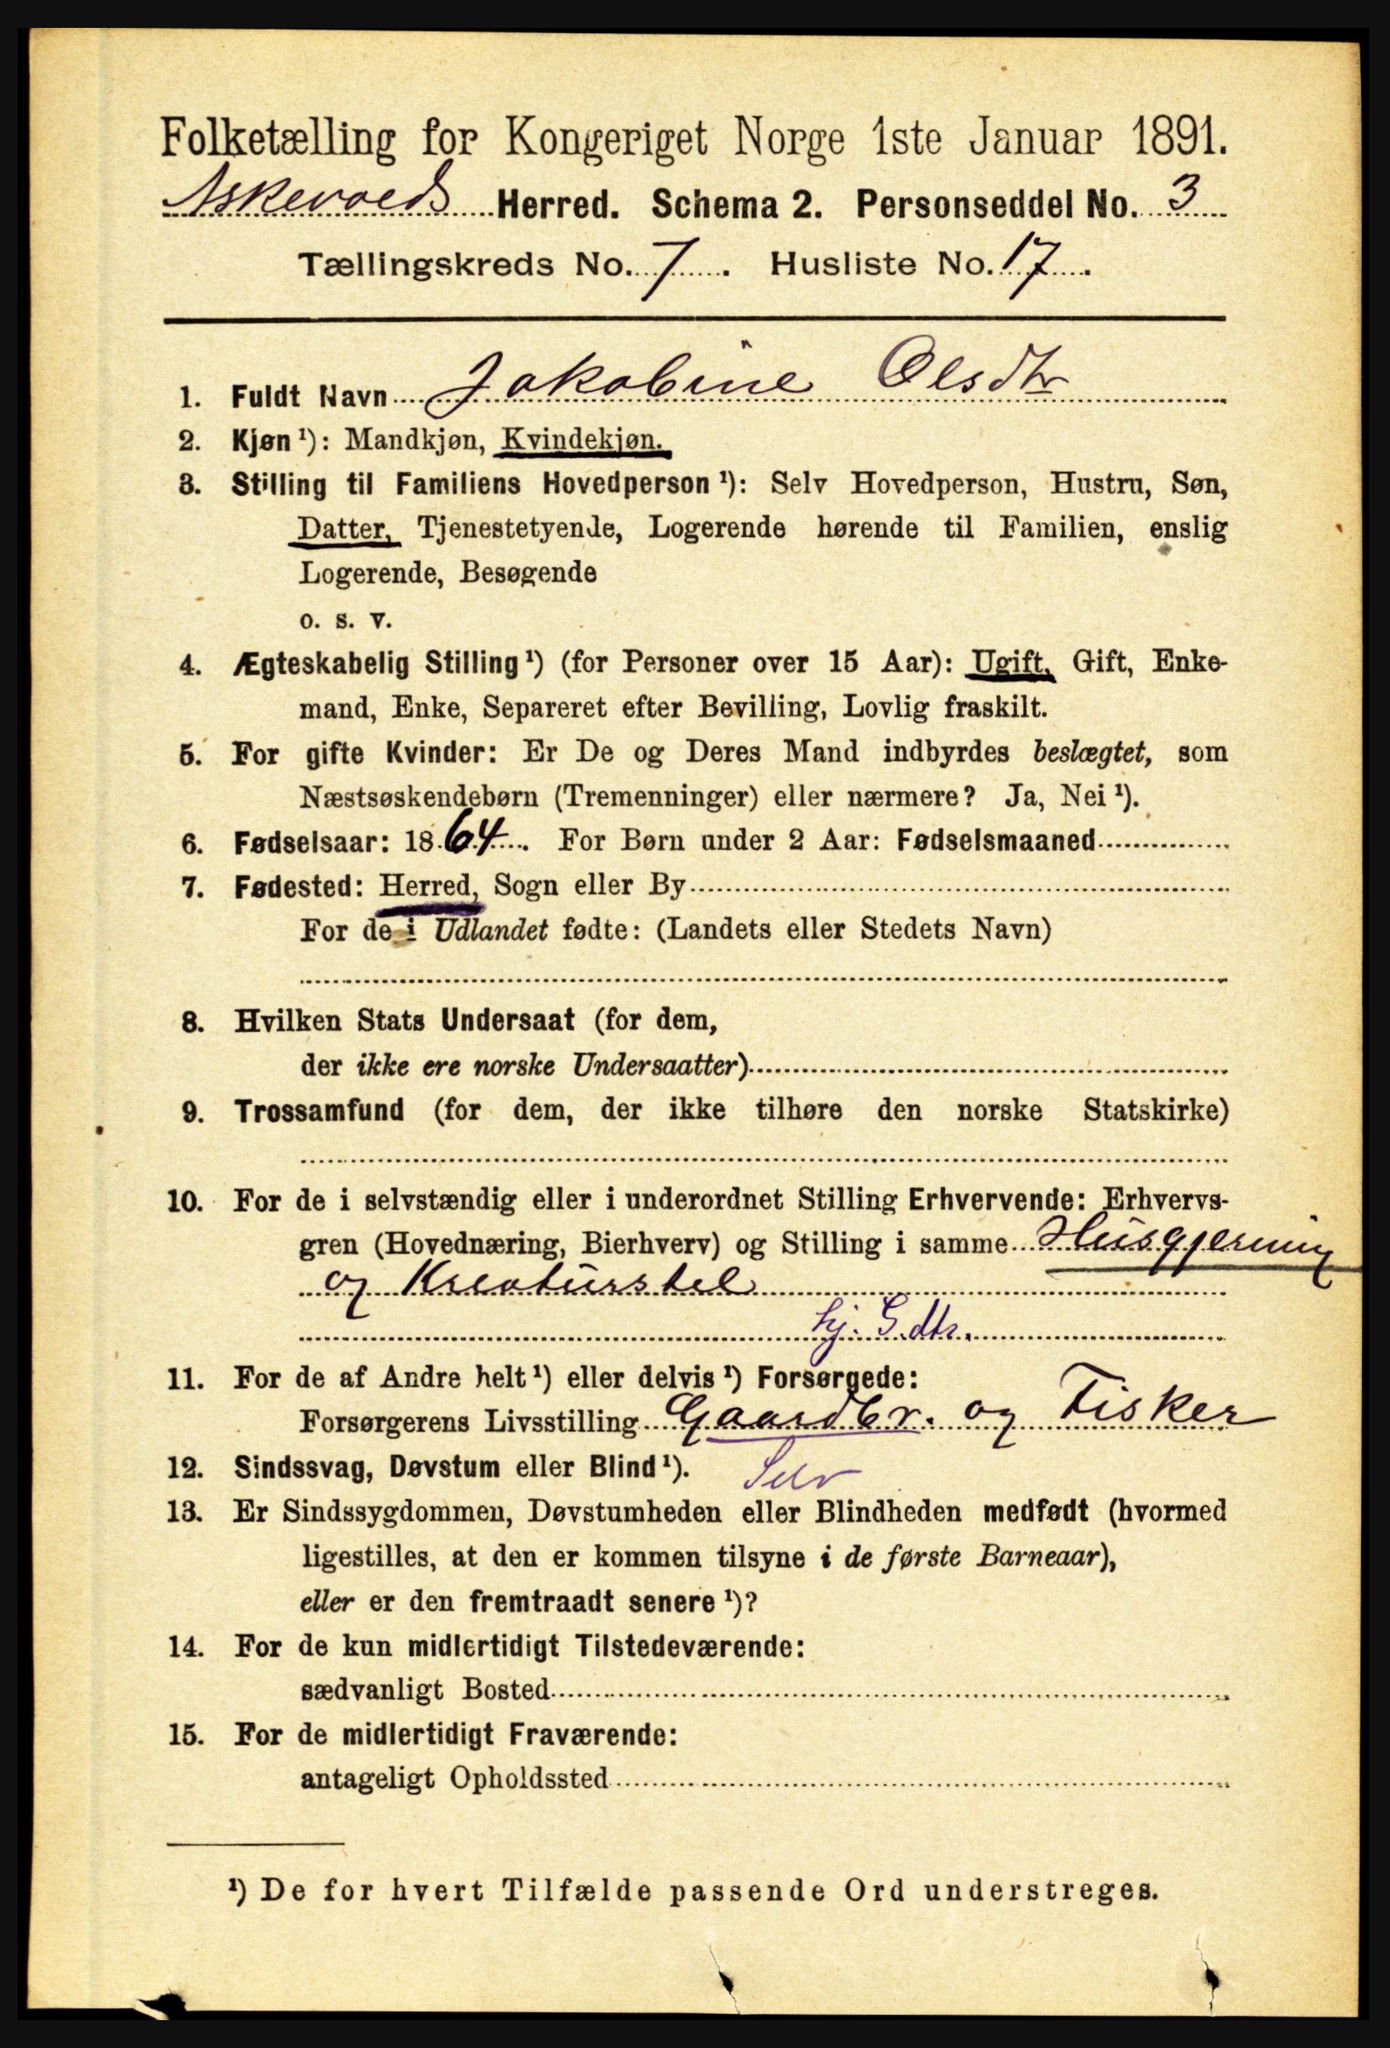 Folketælling for Kongeriget Norge 1ste Januar 1891.
Askevolds Herred. Schema 2. Personseddel No. 3
Tællingskreds No. 7. Husliste No. 17.
1. Fuldt Navn Jakobine Olsdtr
2. Kjøn ¹): Mandkjøn, Kvindekjøn.
3. Stilling til Familiens Hovedperson ¹): Selv Hovedperson, Hustru, Søn,
Datter, Tjenestetyende, Logerende hørende til Familien, enslig
Logerende, Besøgende
o. s. v.
4. Ægteskabelig Stilling ¹) (for Personer over 15 Aar): Ugift, Gift, Enke-
mand, Enke, Separeret efter Bevilling, Lovlig fraskilt.
5. For gifte Kvinder: Er De og Deres Mand indbyrdes beslægtet, som
Næstsøskendebørn (Tremenninger) eller nærmere? Ja, Nei ¹).
6. Fødselsaar: 1864. For Børn under 2 Aar: Fødselsmaaned
7. Fødested: Herred, Sogn eller By
For de i Udlandet fødte: (Landets eller Stedets Navn)
8. Hvilken Stats Undersaat (for dem,
der ikke ere norske Undersaatter)
9. Trossamfund (for dem, der ikke tilhøre den norske Statskirke)
10. For de i selvstændig eller i underordnet Stilling Erhvervende: Erhvervs-
gren (Hovednæring, Bierhverv) og Stilling i samme Husgjerning
og Kreaturstel
hj. G. dtr.
11. For de af Andre helt ¹) eller delvis ¹) Forsørgede:
Forsørgerens Livsstilling Gaardbr. og Fisker
12. Sindssvag, Døvstum eller Blind ¹). Selv
13. Er Sindssygdommen, Døvstumheden eller Blindheden medfødt (hvormed
ligestilles, at den er kommen tilsyne i de første Barneaar),
eller er den fremtraadt senere ¹)?
14. For de kun midlertidigt Tilstedeværende:
sædvanligt Bosted
15. For de midlertidigt Fraværende:
antageligt Opholdssted
¹) De for hvert Tilfælde passende Ord understreges.